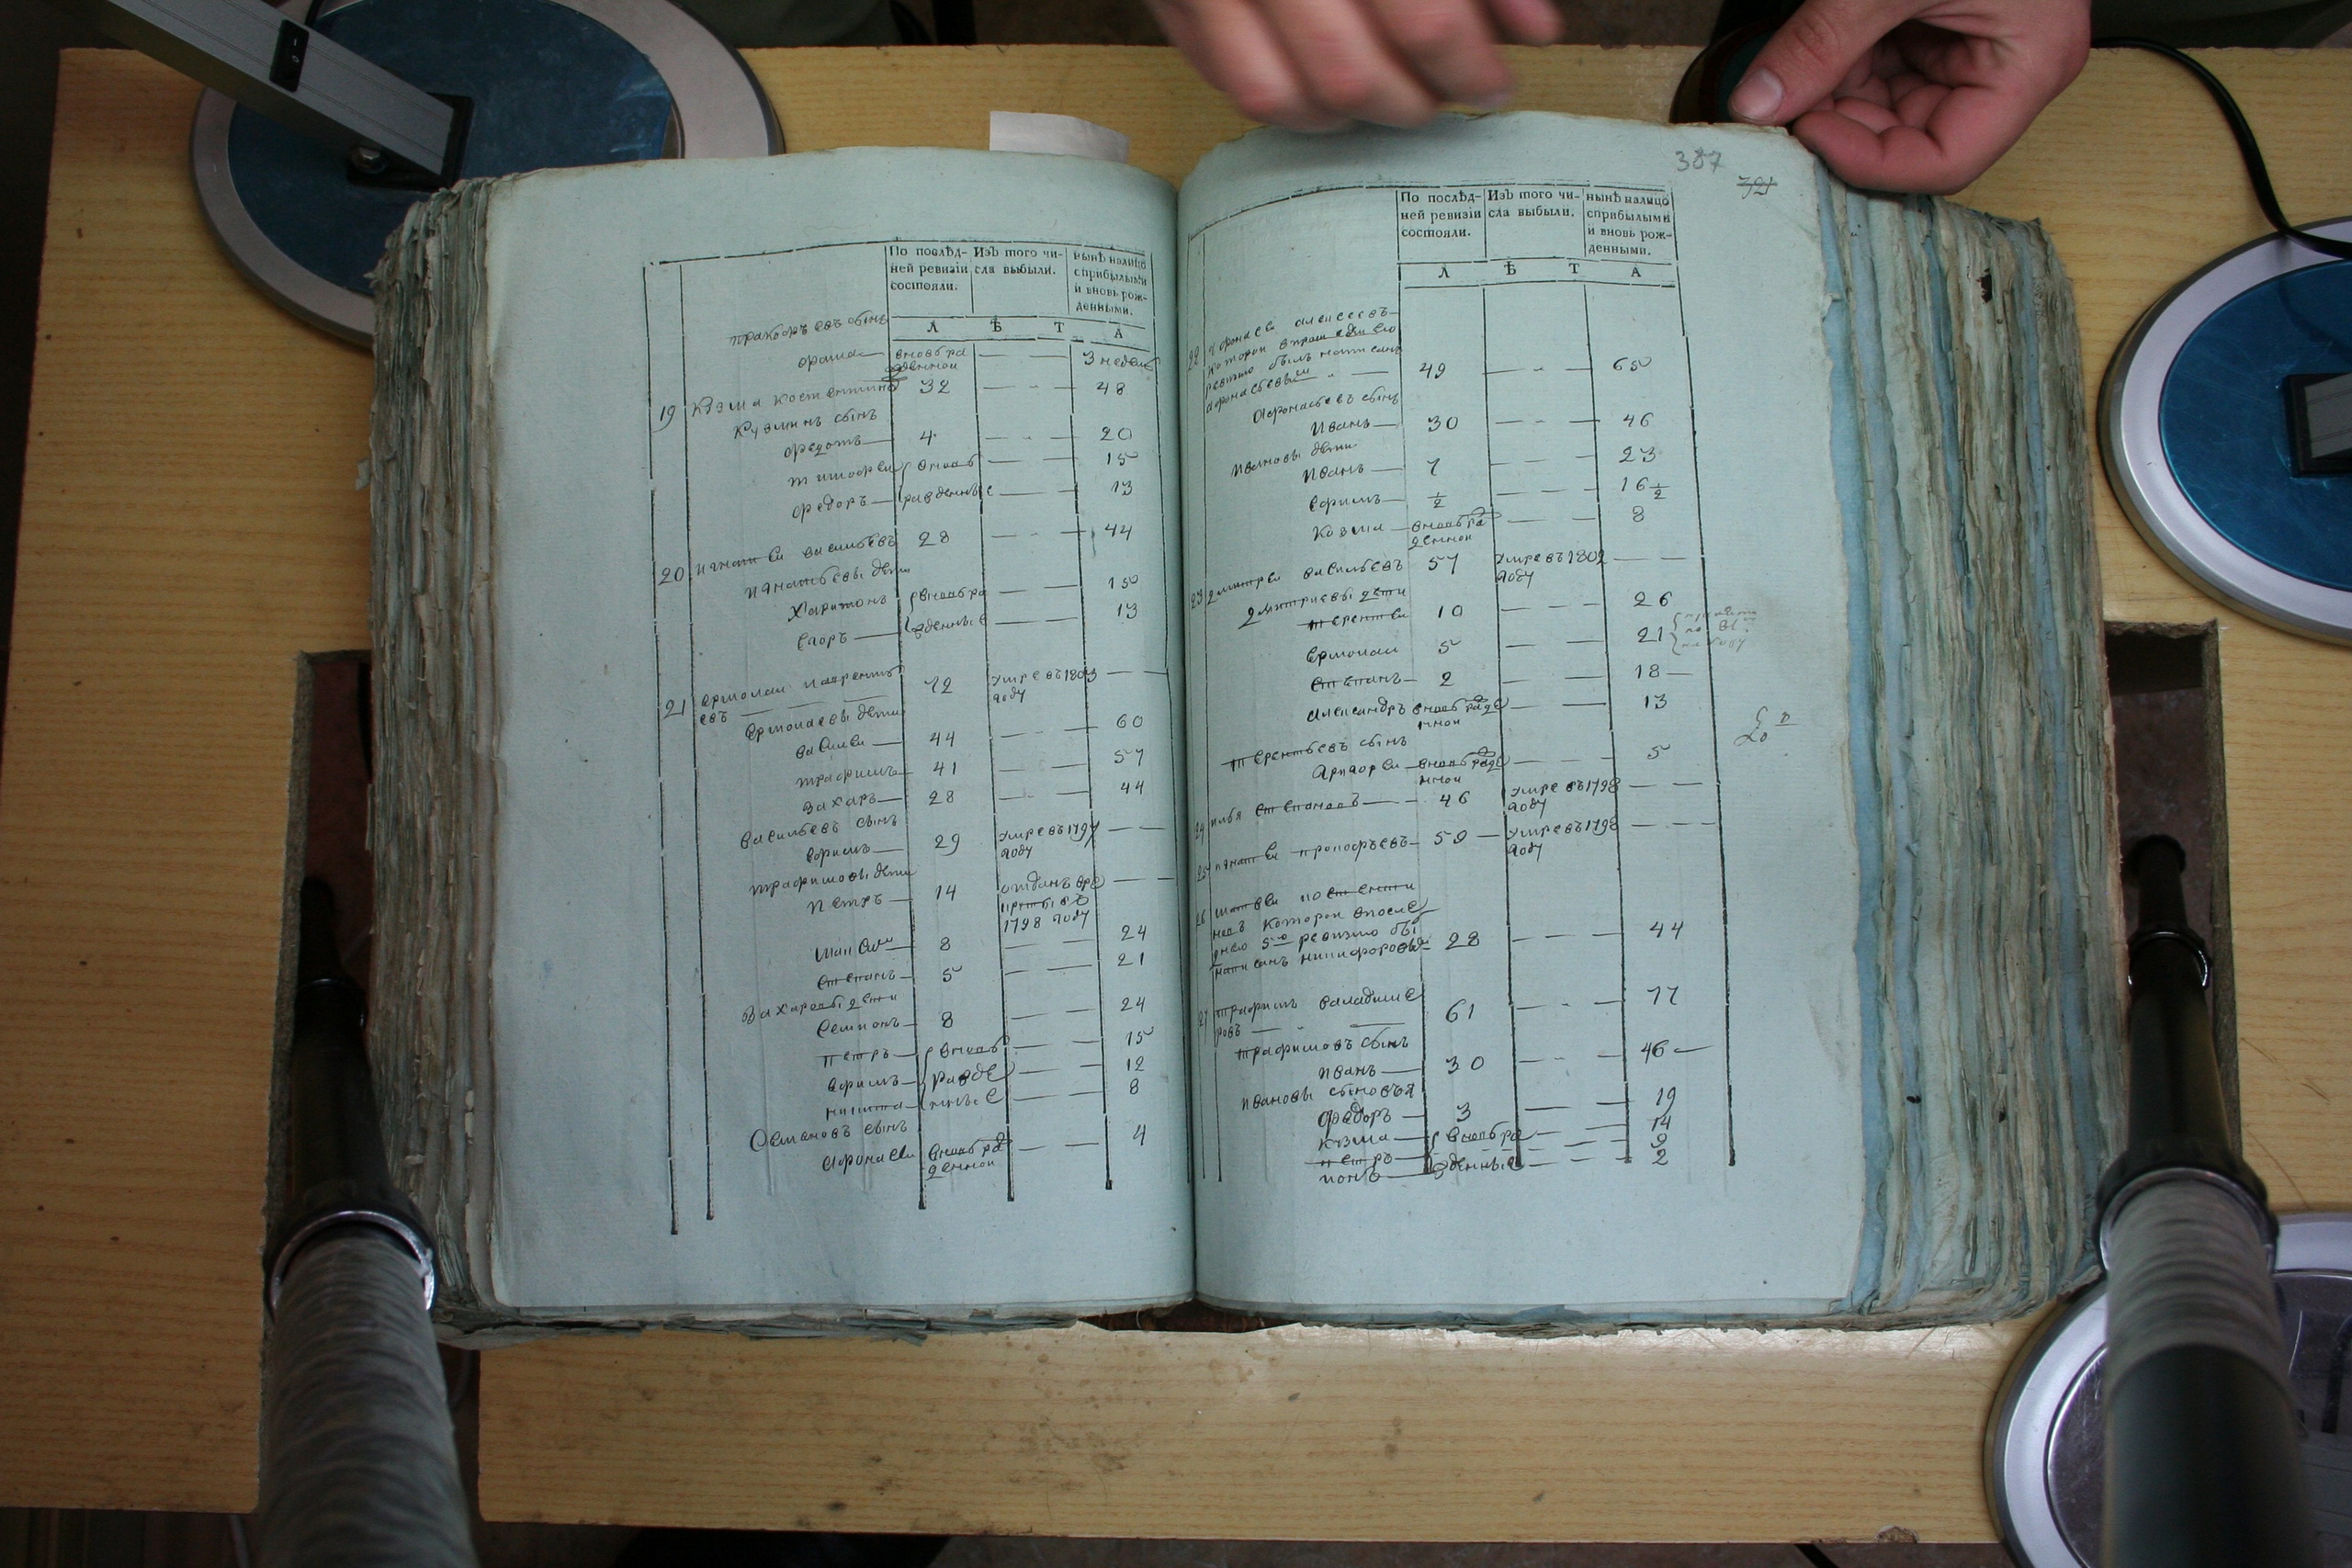 По послѣд-
ней ревизіи
состояли.
Изъ того чи-
сла выбыли.
нынѣ налицо
сприбылыми
и вновь рож-
денными.
Л Ѣ Т А
сынъ
фома вновь ра
жденной — — 3 недел
19 Кузма костентино 32 — — 48
Кузминъ сынъ
федотъ 4 — — 20
тимофеи вновь — — 15
федоръ ражденные — — 13
20 игнатеи васильевъ 28 — — 44
игнатьевы дети
Харитонъ вновь ра — — 15
егоръ жденные — — 13
21 ермолаи лаврентъ
евъ 72 умре въ 1803
году
ермолаевы дети
василеи 44 — — 60
трафимъ 41 — — 57
захаръ 28 — — 44
васильевъ сынъ
ефимъ 29 умре въ 1797
году
трафимовы дети
петръ 14 отданъ вре
круты въ
1798 году
8 — — 24
степанъ 5 — — 21
захаровы дети
семионъ 8 — — 24
петръ вновь — — 15
ефимъ ражде — — 12
никита нные — — 8
сынъ
афонасеи вновь ра — — 4
жденнои
387
721
По послѣд-
ней ревизіи
состояли.
Изъ того чи-
сла выбыли.
нынѣ налицо
сприбылыми
и вновь рож-
денными.
Л Ѣ Т А
22 афонасеи алексеевъ
которои впрошедшею
ревизию былъ написанъ
афонасьевымъ 49 — — 65
Афонасьевъ сынъ
Иванъ 30 — — 46
Ивановы дети
Иванъ 7 — — 23
ефимъ ½ — — 16½
Козма вновь ра — — 8
жденнои
23 дмитреи васильевъ 57 умре въ 1802
году
дмитриевы дети
терентеи 10 — — 26
ермолаи 5 — — 21
степанъ 2 — — 18
александръ вновь ражде — — 13
ннои
терентьевъ сынъ
вновь ражде — — 5
ннои
24 илья степановъ 46 умре въ 1798
году
25 игнатеи прокофьевъ 59 умре въ 1798
году
26 матвеи костенти
новъ которои впосле
днею 5ю ревизию бы
написанъ никифоровы 28 — — 44
27 трафимъ валадиме
ровъ 61 — — 77
трафимовъ сынъ
иванъ 30 — — 46
ивановы сыновья
федоръ 3 — — 19
кузма вновь ра — — 14
петръ — — 9
жденные — — 2